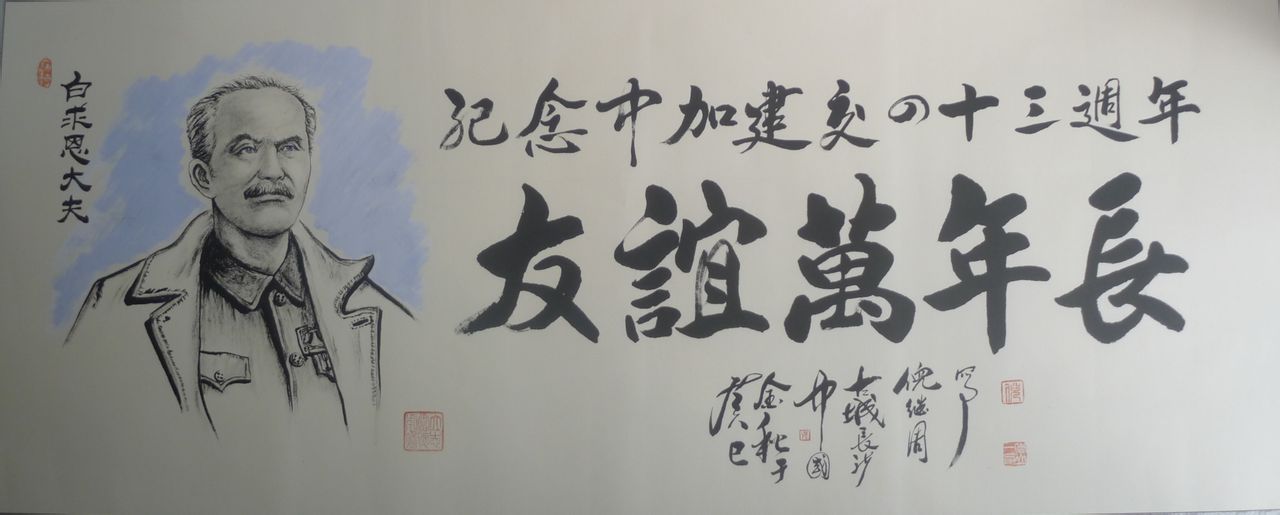 白求恩大夫
紀念中加建交四十三週年
友誼萬年長
癸巳
金秋于
中國
古城長沙
倪继周
写